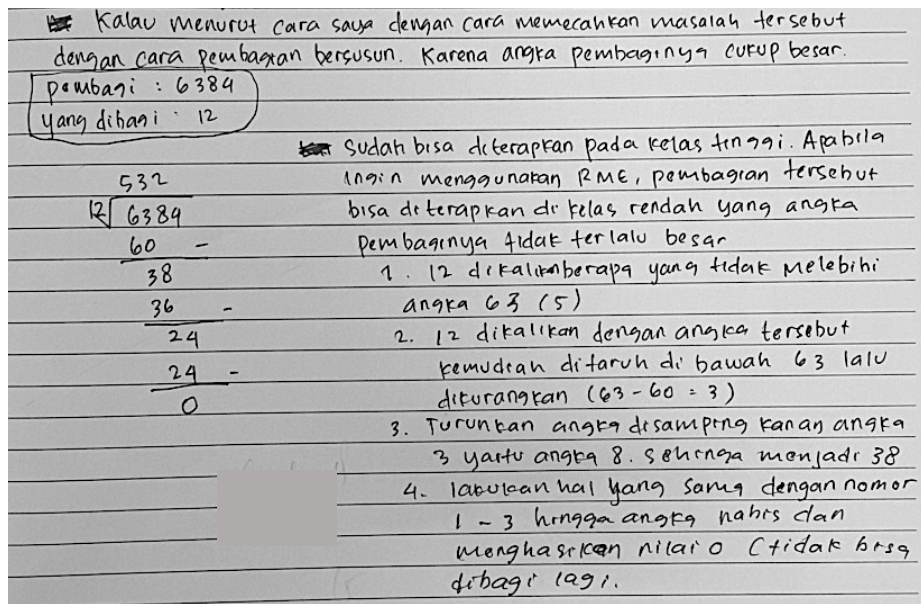 Kalau menurut cara saya dengan cara memecahkan masalah tersebut
dengan cara pembagian bersusun. Karena angka pembaginya cukup besar.
pembagi : 6384
yang dibagi : 12
532
12 6384
60 -
38
36 -
24
24 -
0
Sudah bisa diterapkan pada kelas tinggi. Apabila
ingin menggunakan RME, pembagian tersebut
bisa diterapkan di kelas rendah yang angka
pembaginya tidak terlalu besar
1. 12 dikalikan berapa yang tidak melebihi
angka 63 (5)
2. 12 dikalikan dengan angka tersebut
kemudian ditaruh di bawah 63 lalu
dikurangkan (63 - 60 = 3)
3. Turunkan angka disamping kanan angka
3 yaitu angka 8. sehingga menjadi 38
4. lakukan hal yang sama dengan nomor
1 - 3 hingga angka habis dan
menghasilkan nilai 0 (tidak bisa
dibagi lagi.